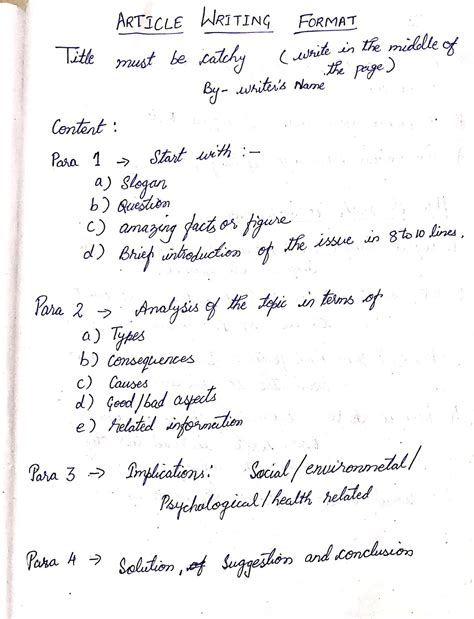 ARTICLE WRITING FORMAT
Title must be catchy (write in the middle of
the page)
By- writer's Name
Content :
Para 1 → Start with :-
a) Slogan
b) Question
c) amazing facts or figure
d) Brief introduction of the issue in 8 to 10 lines.
Para 2 → Analysis of the topic in terms of
a) Types
b) Consequences
c) Causes
d) Good/bad aspects
e) related information
Para 3 → Implications: Social/environmetal/
Psychological/health related
Para 4 → Solution, of Suggestion and conclusion